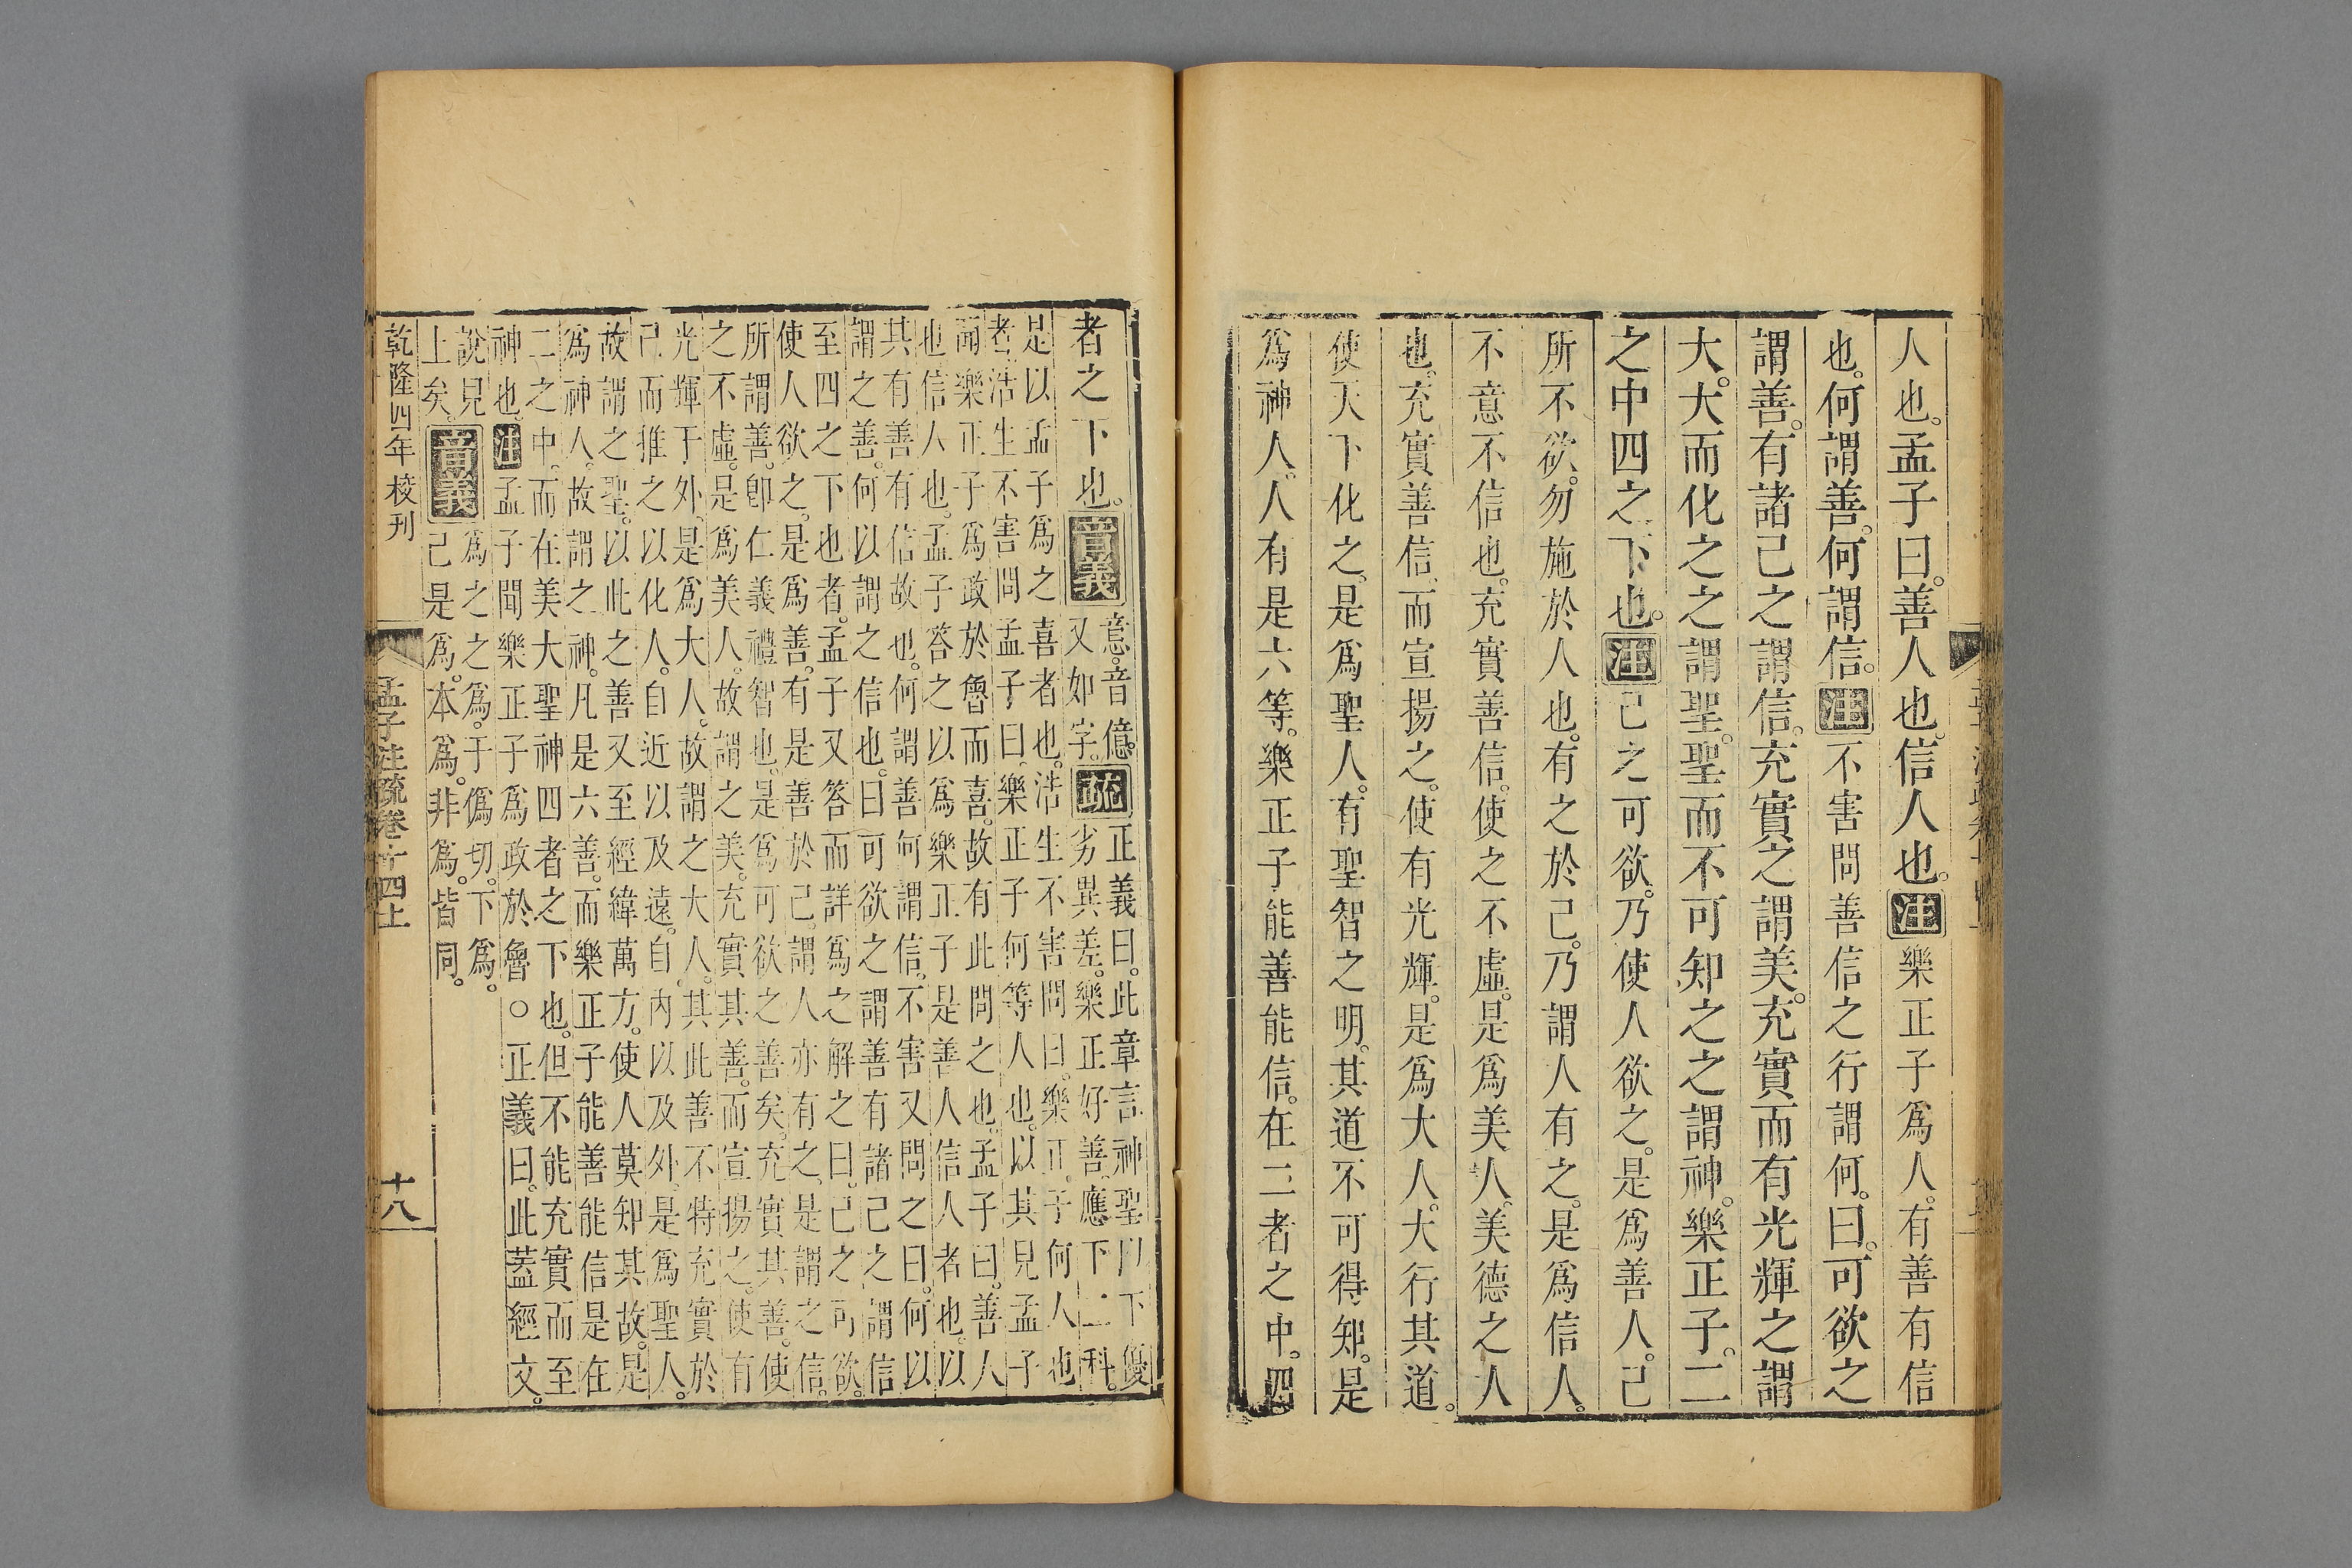 人也。孟子曰。善人也。信人也。注樂正子爲人。有善有信
也。何謂善。何謂信。注不害問善信之行謂何。曰。可欲之
謂善。有諸己之謂信。充實之謂美。充實而有光輝之謂
大。大而化之之謂聖。聖而不可知之之謂神。樂正子。二
之中四之下也。注己之可欲。乃使人欲之。是爲善人。己
所不欲。勿施於人也。有之於己。乃謂人有之。是爲信人。
不意不信也。充實善信。使之不虛。是爲美人。美德之人
也。充實善信。而宣揚之。使有光輝。是爲大人。大行其道。
使天下化之。是爲聖人。有聖智之明。其道不可得知。是
爲神人。人有是六等。樂正子能善能信。在二者之中。四
者之下也。音義意。音億。
又如字。疏正義曰。此章言神聖以下優
劣異差。樂正好善。應下二科。
是以孟子爲之喜者也。浩生不害問曰。樂正子何人也
者。浩生不害問孟子曰。樂正子何等人也。以其見孟子
聞樂正子爲政於魯而喜。故有此問之也。孟子曰。善人
也信人也。孟子答之以爲樂正子是善人信人者也。以
其有善有信故也。何謂善何謂信。不害又問之曰。何以
謂之善。何以謂之信也。曰可欲之謂善有諸己之謂信
至四之下也者。孟子又答而詳爲之解之曰。己之可欲。
使人欲之。是爲善。有是善於己。謂人亦有之。是謂之信。
所謂善。卽仁義禮智也。是爲可欲之善矣。充實其善。使
之不虛。是爲美人。故謂之美。充實其善。而宣揚之。使有
光輝于外。是爲大人。故謂之大人。其此善不特充實於
己而推之以化人。自近以及遠。自內以及外。是爲聖人。
故謂之聖。以此之善又至經緯萬方。使人莫知其故。是
爲神人。故謂之神。凡是六善。而樂正子能善能信是在
二之中。而在美大聖神四者之下也。但不能充實而至
神也。注孟子聞樂正子爲政於魯○正義曰。此蓋經文。
說見
上矣。音義爲之之爲。于僞切。下爲。
己是爲。本爲。非爲。皆同。
乾隆四年校刊
孟子注疏卷十四上
十八